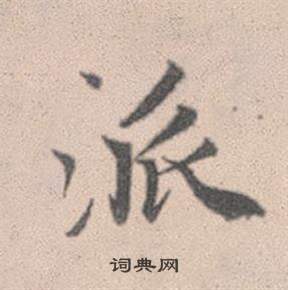 派
词典网